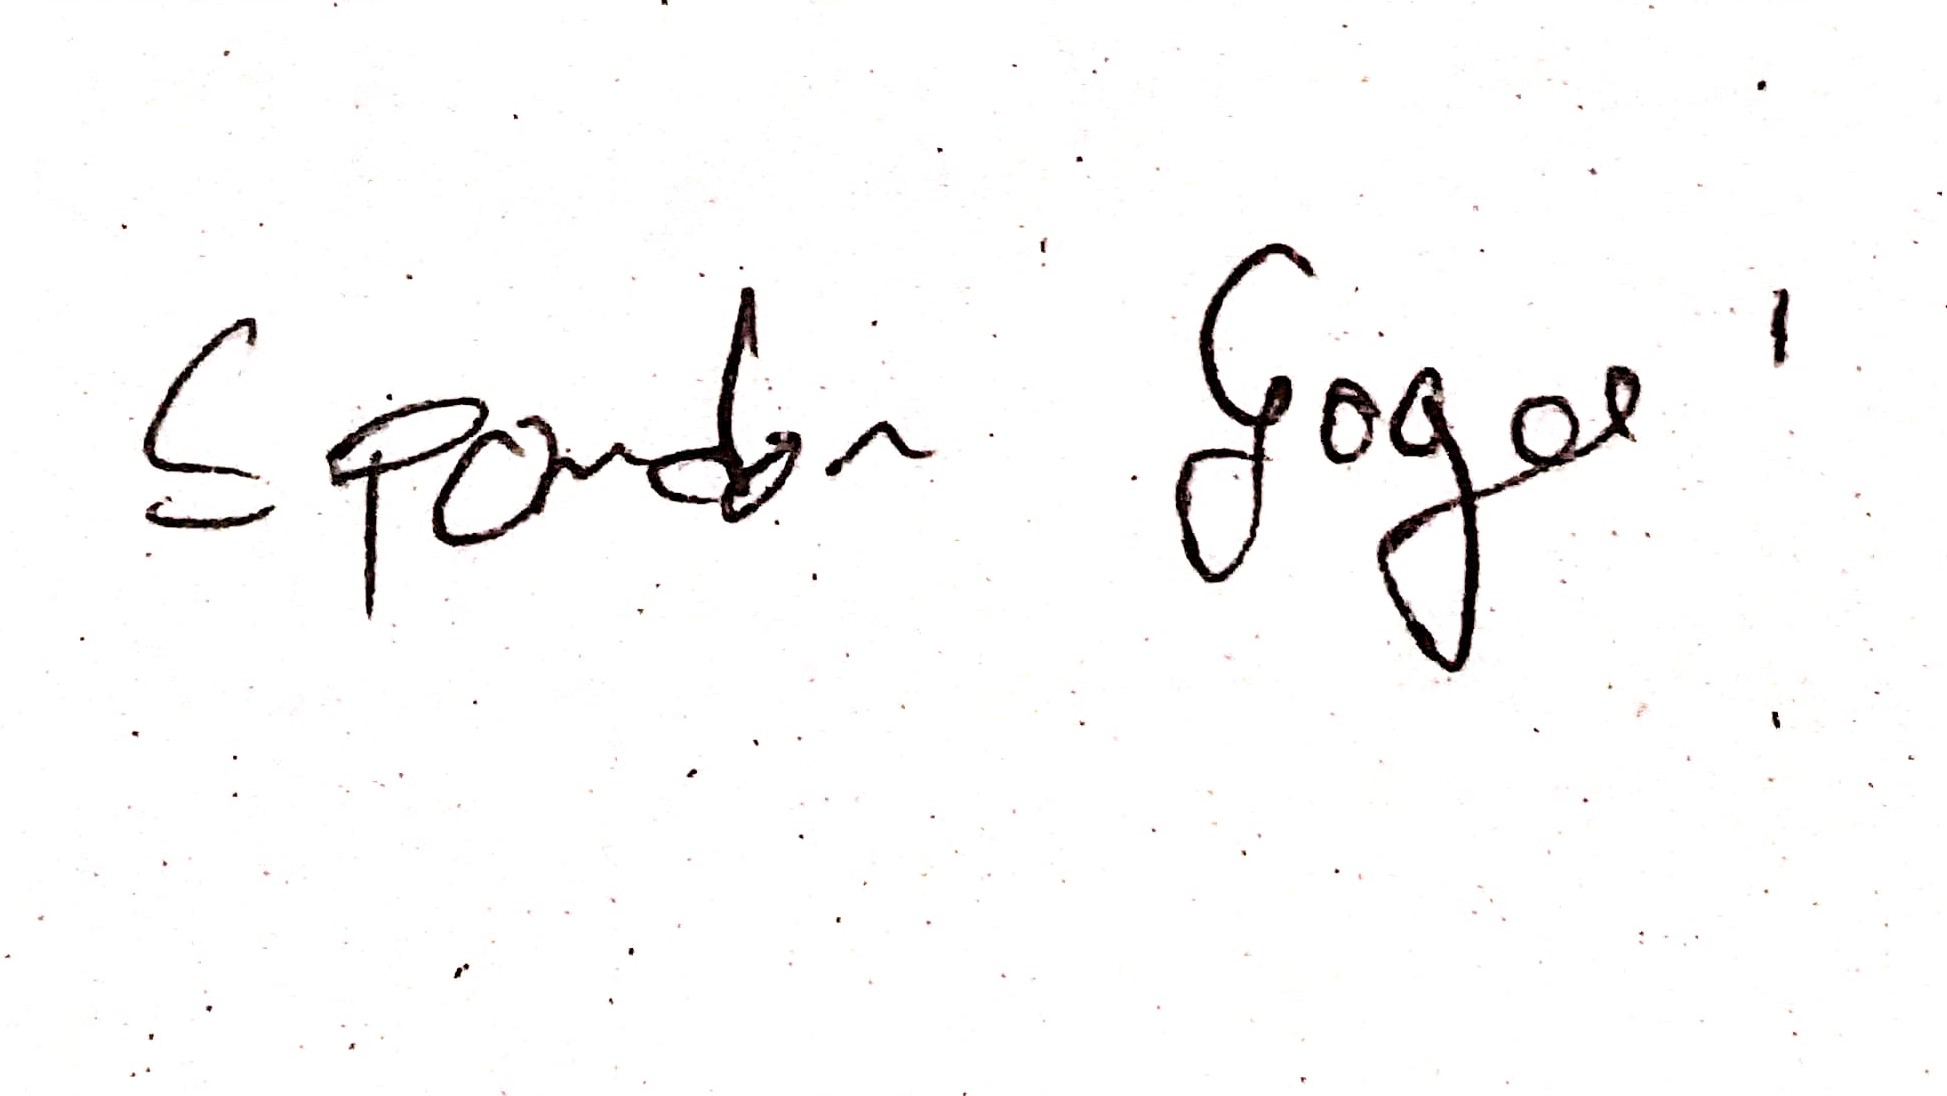 Spondon Gogoi